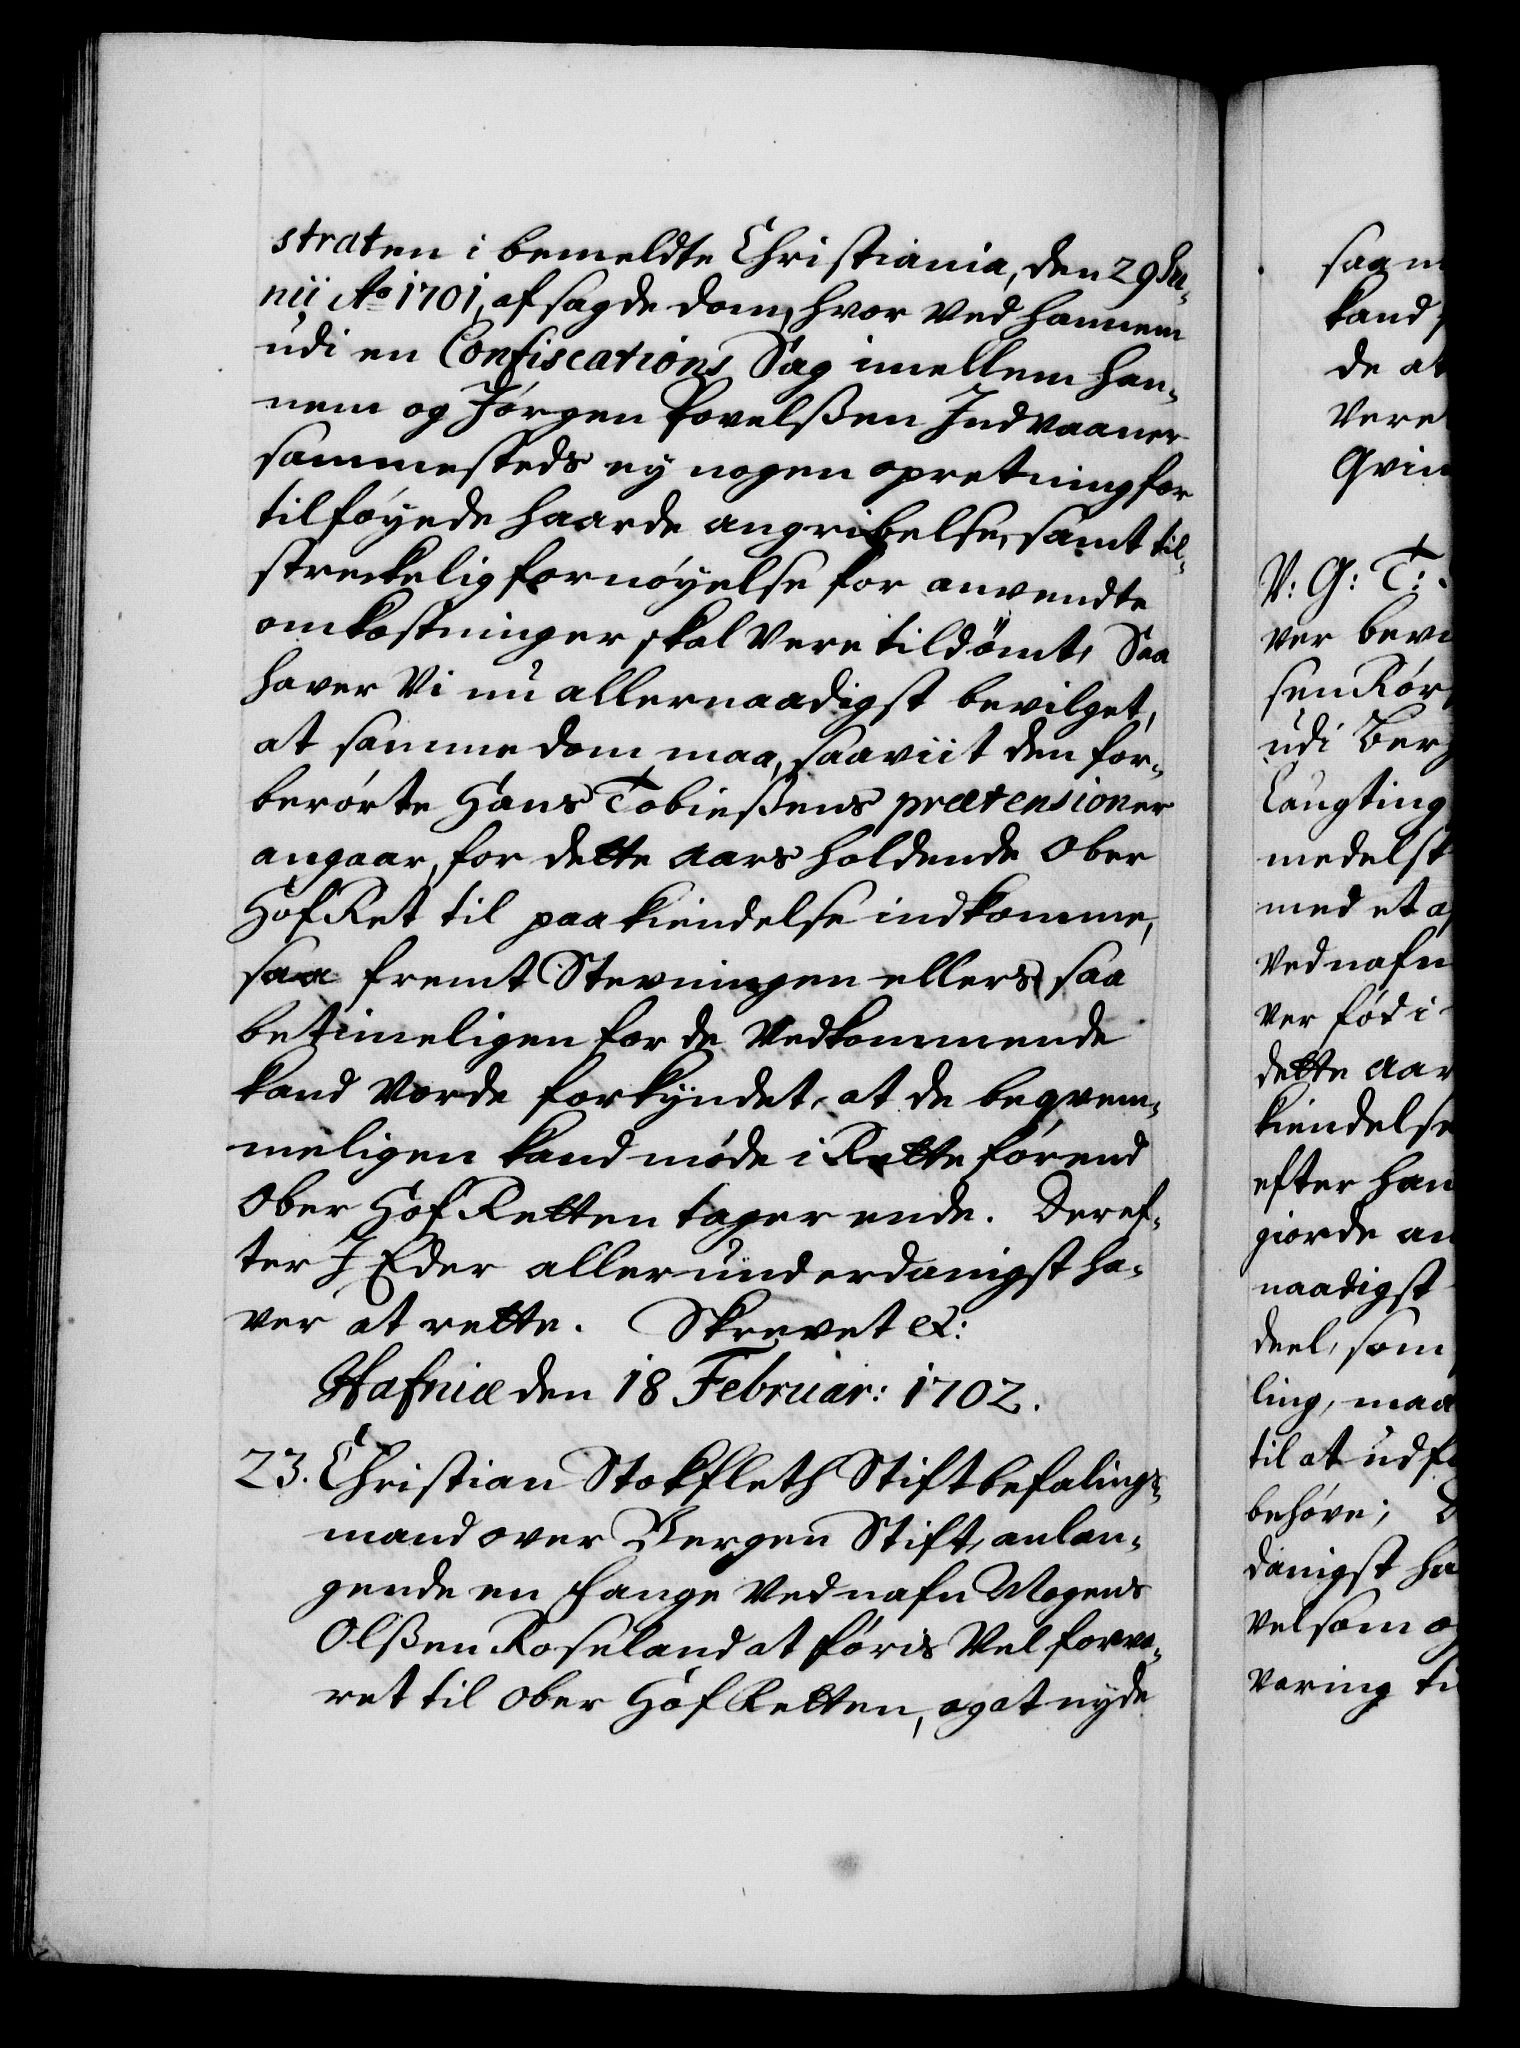 straten i bemeldte Christiania, den 29 Ju-
nii Ao 1701, afsagde dom, hvor ved hannem
udi en Confiscations Sag imellem han-
nem og Jørgen Povelßen Indvaaner
sammesteds ey nogen opretning for
tilføyede haarde angribelse, samt til-
streckelig fornøyelse for anvendte
omkostninger skal Vere tildømt, Saa
haver Vi nu allernaadigst bevilget,
at samme dom maa, saaviit den for-
berørte Hans Tobiesßens prætensioner
angaar, for dette Aars holdende Ober
Hof Ret til paakiendelse indkomme,
saa fremt Stevningen ellers saa
betimeligen for de Vedkommende
kand Vorde forkyndet, at de beqvem-
meligen kand møde i Rette førend
Ober Hof Retten tager ende. Deref-
ter I Eder allerunderdanigst ha-
ver at rette. Skrevet &:
Hafniæ den 18 Februar: 1702.
23. Christian Stokfleth Stiftbefalings-
mand over Bergen Stift, anlan-
gende en fange Ved nafn Mogens
Olßen Roseland at føris Vel forva-
ret til Ober Hof Retten, og at nyde
saa m
kand
de at
Vere
Qvin
V: G: T:
ver bevi
sen Rør
udi Berg
Laugting
medelst
med et a
Ved nafn
Ver fød i
dette Aar
kiendelse
efter han
giorde an
naadigst
deel, som
ling, maa
til at udf
behøve; D
danigst ha
Vel som o
Varing ti